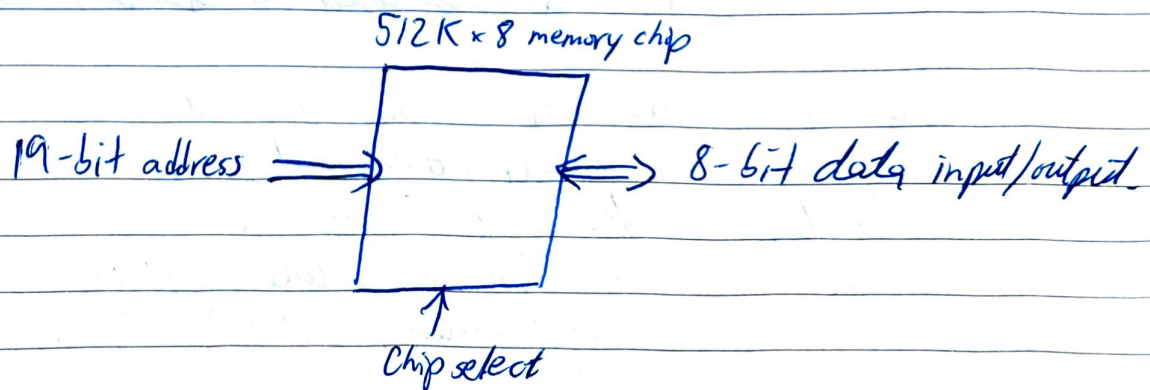 512K × 8 memory chip
19-bit address
8-bit data input/output.
Chip select